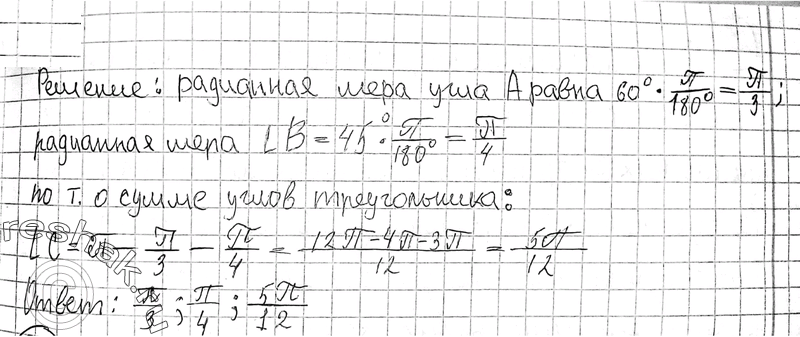 Решение: радианная мера угла A равна 60° · π/180° = π/3;
радианная мера ∠B = 45° · π/180° = π/4
по т. о сумме углов треугольника:
∠C = π - π/3 - π/4 = (12π-4π-3π)/12 = 5π/12
Ответ: π/3; π/4; 5π/12